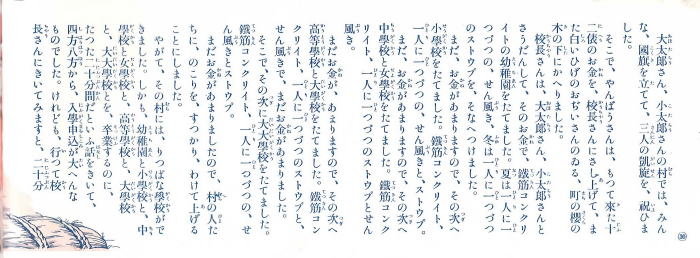 ㊱
大太郎さん、小太郎さんの村では、みん
な、國旗を立てて、三人の凱旋を、祝ひま
した。
そこで、やんばうさんは、もつて來た十
二俵のお金を、校長さんにさし上げて、ま
た白いひげのおぢいさんのゐる、町の櫻の
木の下にかへりました。
校長さんは、大太郎さん、小太郎さんと
さうだんして、そのお金で、鐵筋コンクリ
イトの幼稚園をたてました。夏は一人に一
つづつの、せん風き、冬は一人に一つづつ
のストウブを、そなへつけました。
まだ、お金があまりますので、その次へ
小學校をたてました。鐵筋コンクリイト、
一人に一つづつの、せん風きと、ストウブ。
まだ、お金があまりますので、その次へ
中學校と女學校をたてました。鐵筋コンク
リイト、一人に一つづつのストウブとせん
風き。
まだお金が、あまりますので、その次へ
高等學校と大學校をたてました。鐵筋コン
クリイト、一人に一つづつのストウブと、
せん風きで、まだお金があまりました。
そこで、その次に大大學校をたてました。
鐵筋コンクリイト、一人に一つづつの、せ
ん風きとストウブ。
まだお金があまりましたので、村の人た
ちに、のこりを、すつかり、わけて上げる
ことにしました。
やがて、その村には、りつぱな學校がで
きました。しかも、幼稚園と小學校と、中
學校と女學校と、高等學校と、大學校
と、大大學校とを、卒業するのに、
たつた二十分間だといふ話をきいて、
四方八方から、入學申込が大へんな
ものでした。けれども、行つて校
長さんにきいてみますと、二十分